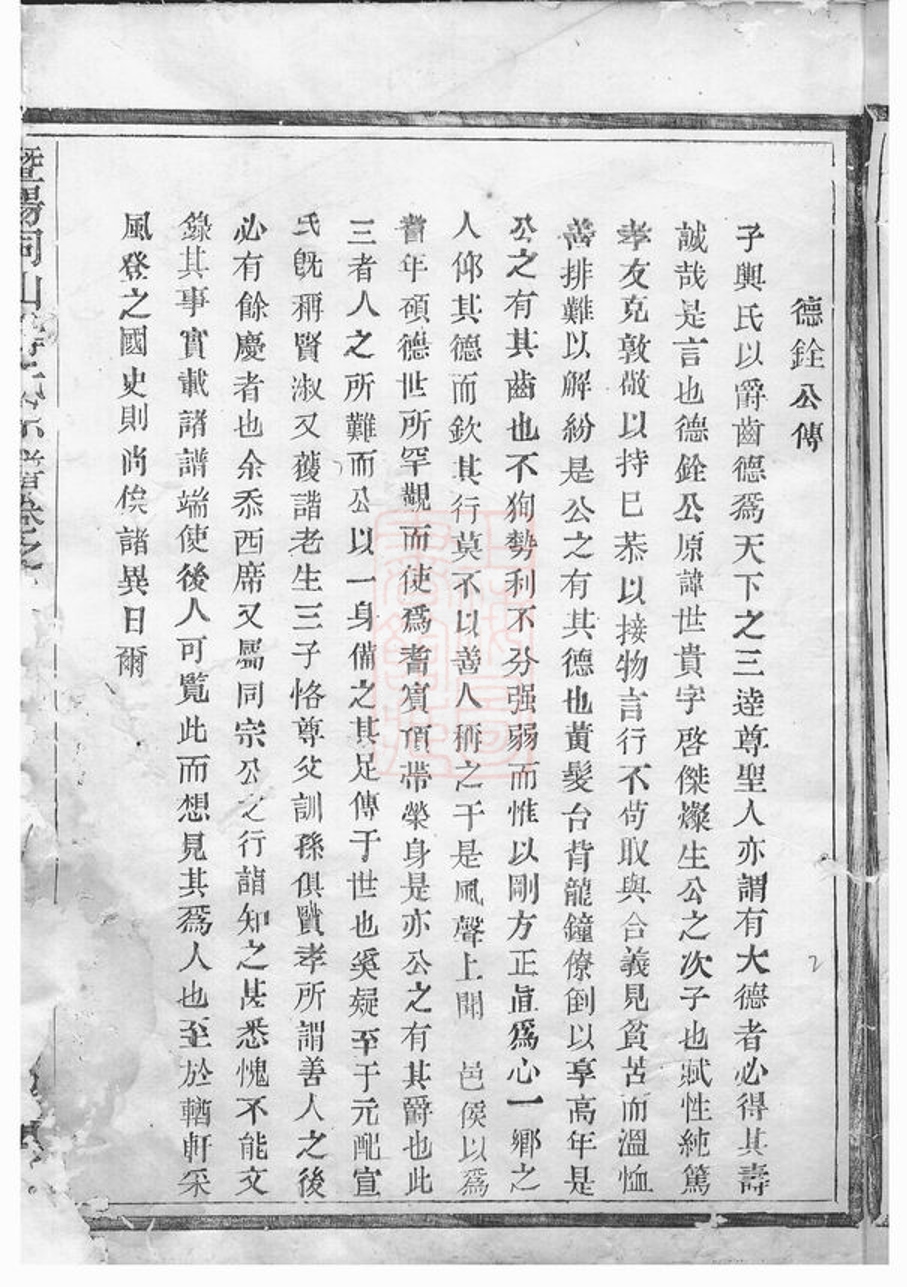 德銓公傳
子輿氏以爵齒德爲天下之三達尊聖人亦謂有大德者必得其壽
誠哉是言也德銓公原諱世貴字啓傑燦生公之次子也賦性純篤
孝友克敦儆以持巳恭以接物言行不苟取與合義見貧苦而溫恤
善排難以解紛是公之有其德也黃髮台背龍鐘僚倒以享高年是
公之有其齒也不狥勢利不分强弱而惟以剛方正直爲心一鄉之
人仰其德而欽其行莫不以善人稱之于是風聲上聞 邑侯以爲
耆年碩德世所罕覯而使爲耆賓頂帶榮身是亦公之有其爵也此
三者人之所難而公以一身備之其足傳于世也奚疑至于元配宣
氏旣稱賢淑又獲諧老生三子恪尊父訓孫俱賢孝所謂善人之後
必有餘慶者也余忝西席又屬同宗公之行誼知之甚悉愧不能文
錄其事實載諸譜端使後人可覧此而想見其爲人也至於輶軒采
風登之國史則尚俟諸異日爾
暨陽同山 宗譜卷之